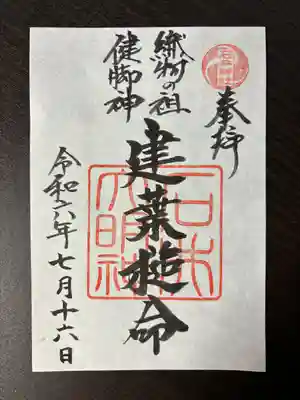 奉拝
織物の祖
健脚神
建葉槌命
令和六年七月十六日
大明神